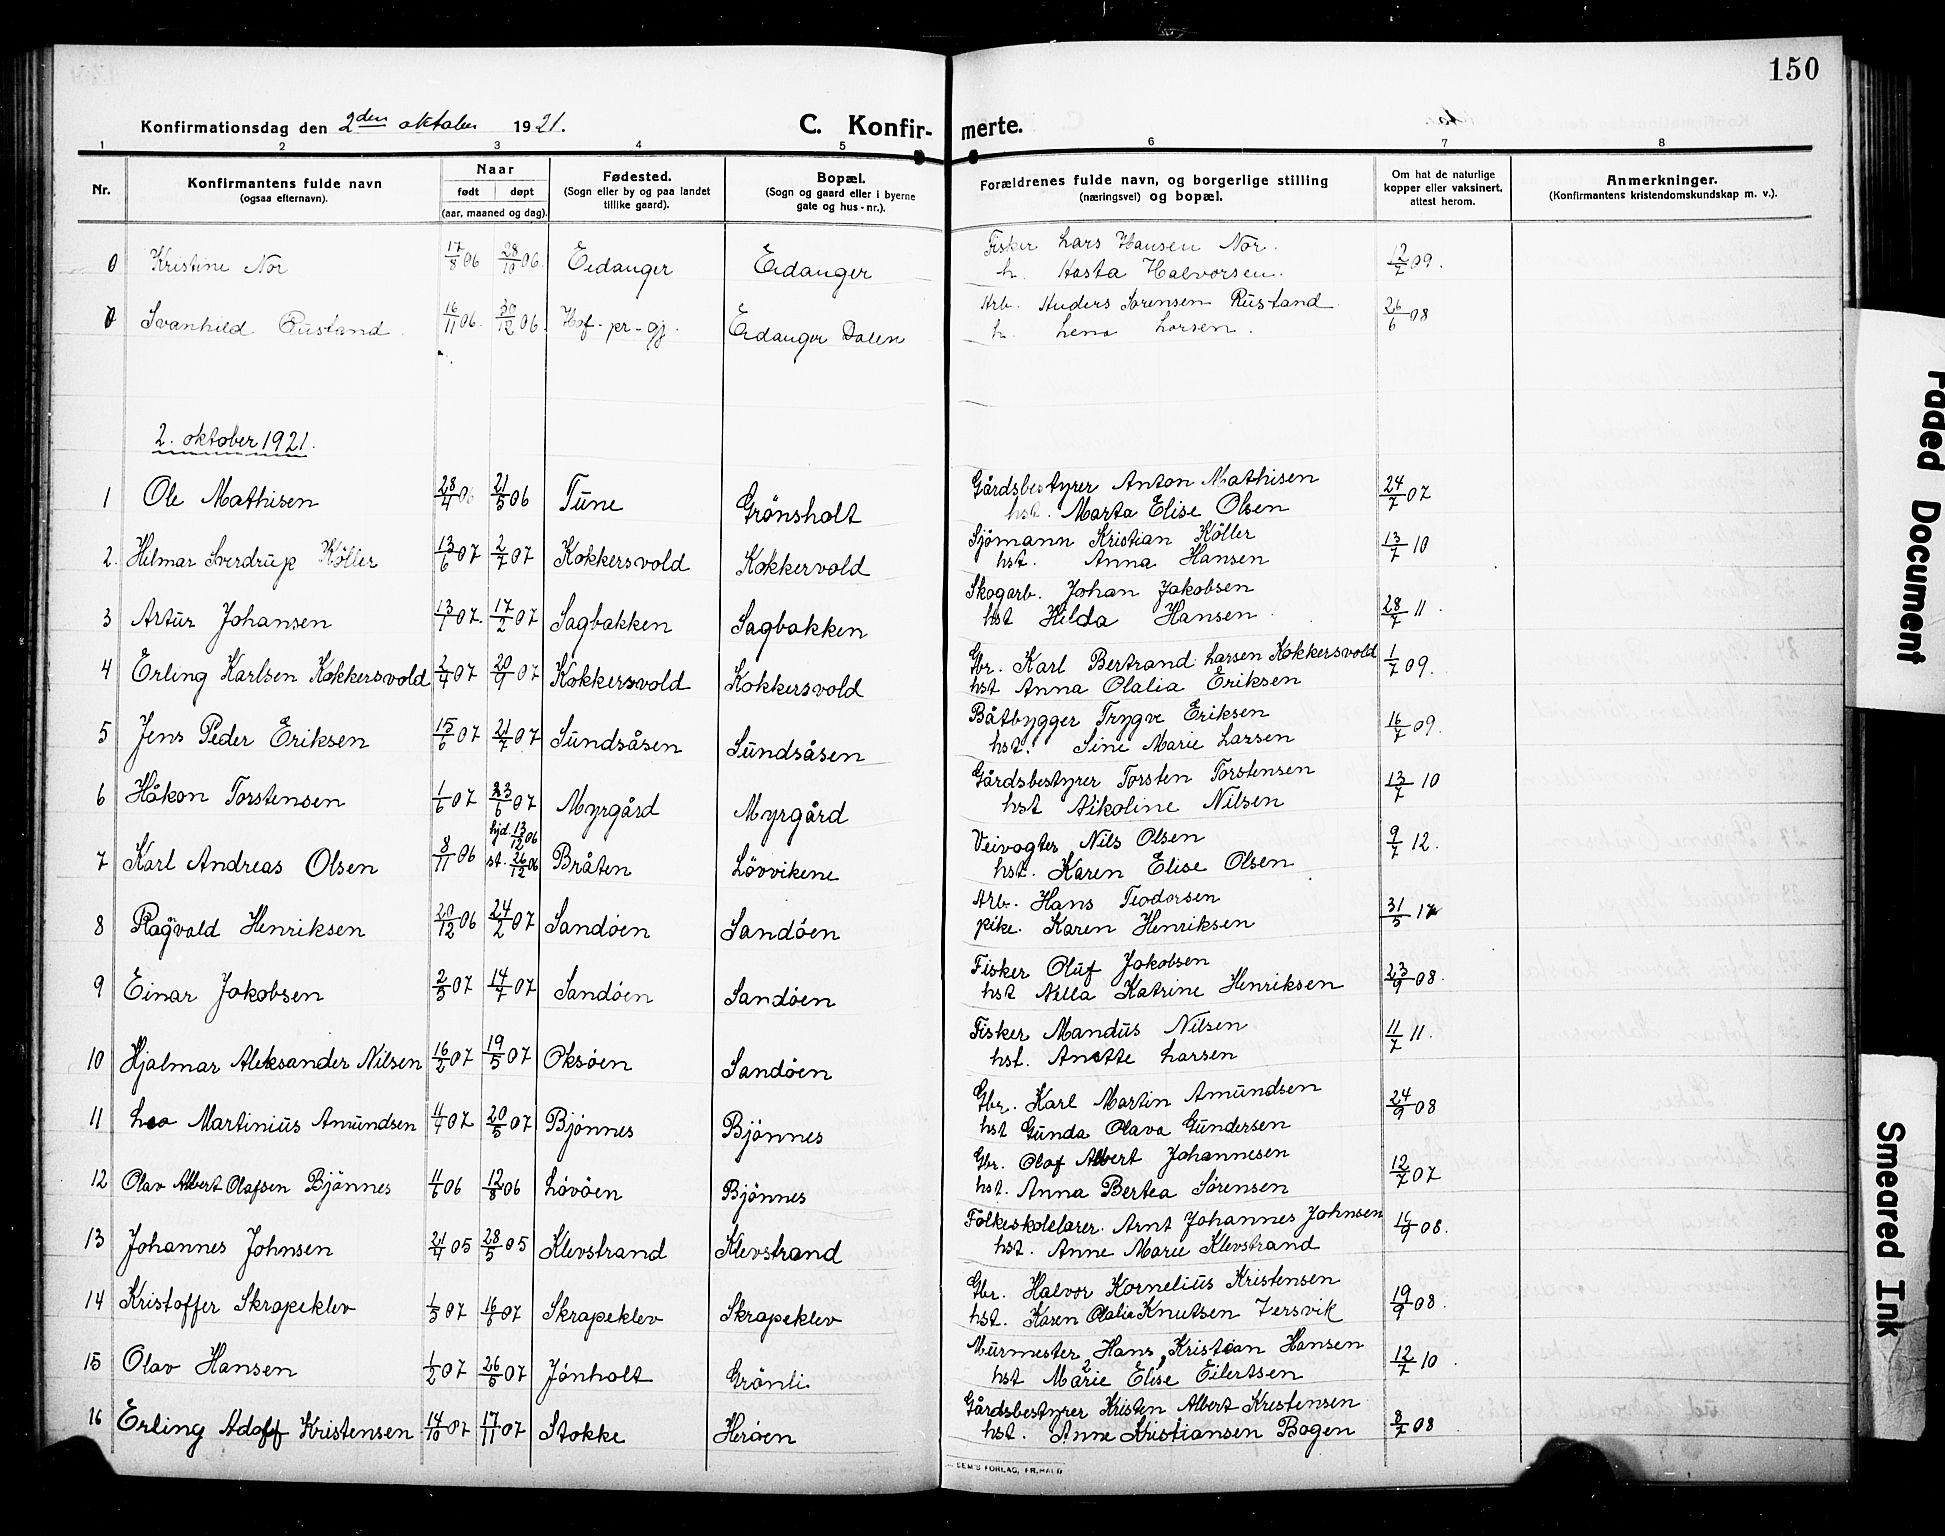 150
Konfirmationsdag den 2den oktober 1921.
C. Konfir- merte.
1 2 3 4 5 6 7 8
Nr.
Konfirmantens fulde navn
(ogsaa efternavn).
Naar
født døpt
(aar, maaned og dag).
Fødested.
(Sogn eller by og paa landet
tillike gaard).
Bopæl.
(Sogn og gaard eller i byerne
gate og hus-nr.).
Forældrenes fulde navn, og borgerlige stilling
(næringsvei) og bopæl.
Om hat de naturlige
kopper eller vaksinert,
attest herom.
Anmerkninger.
(Konfirmantens kristendomskundskap m. v.).
0 Kristine Nor 17/8 06 28/10 06. Eidanger Eidanger Fisker Lars Hansen Nor. 12/7 09.
h. Hasta Halvorsen.
0 Svanhild Rustand 16/11 06. 30/12 06. Hof-pr-gj. Eidanger Dalen Arb. Anders Sørensen Rustand 26/6 08
h. Lena Larsen.
2. oktober 1921.
1 Ole Mathisen 28/4 06 21/5 06 Tune Grönsholt Gårdsbestyrer Anton Mathisen 24/7 07
hst. Marta Elise Olsen
2. Hilmar Sverdrup Köller 13/6 07 2/7 07 Kokkersvold Kokkervold Sjömann Kristian Köller 13/7 10
hst. Anna Hansen
3 Artur Johansen 13/1 07. 17/2 07 Sagbakken Sagbakken Skogarb. Johan Jakobsen 28/7 11.
hst Hilda Hansen
4 Erling Karlsen Kokkersvold 2/4 07 20/9 07 Kokkersvold Kokkersvold Gbr. Karl Bertrand Larsen Kokkersvold 1/7 09.
hst Anna Olalia Eriksen
5 Jens Peder Eriksen 15/6 07 21/7 07 Sundsåsen Sundsåsen Båtbygger Trygve Eriksen 16/7 09.
hst. Sine Marie Larsen
6 Håkon Torstensen 1/6 07 23/6 07 Myrgård Myrgård Gårdsbestyrer Torsten Torstensen 13/7 10
hst Nikoline Nilsen
7 Karl Andreas Olsen 8/11 06 hjd. 13/12 06 st. 26/12 06 Bråten Lövvikene Veivogter Nils Olsen 9/7 12.
hst. Karen Elise Olsen
8 Ragvald Henriksen 20/12 06 24/2 07 Sandöen Sandöen Arb. Hans Teodorsen 31/5 17
pike. Karen Henriksen
9 Einar Jakobsen 2/5 07 14/7 07 Sandöen Sandöen Fisker Oluf Jakobsen 23/9 08.
hst Nilla Katrine Henriksen
10 Hjalmar Aleksander Nilsen 16/2 07 19/5 07 Oksöen Sandöen Fisker Mandus Nilsen 11/7 11.
hst. Anette Larsen
11 Leo Martinius Amundsen 11/4 07 20/5 07 Bjönnes Bjönnes Gbr. Karl Martin Amundsen 24/9 08
hst Gunda Olava Gundersen
12 Olav Albert Olafsen Bjönnes 11/6 06 12/8 06 Lövöen Bjönnes Gbr. Olaf Albert Johannesen 12/7 07
hst. Anna Bertea Sörensen
13 Johannes Johnsen 21/4 05 28/5 05 Klevstrand Klevstrand Folkeskolelærer. Arnt Johannes Johnsen 16/9 08.
hst. Anne Marie Klevstrand
14 Kristoffer Skrapeklev 1/5 07 16/6 07 Skrapeklev Skrapeklev Gbr. Halvor Kornelius Kristensen 19/9 08.
hst. Karen Olalia Knutsen Versvik
15 Olav Hansen 1/2 07 26/5 07 Jönholt Grönli Murmester Hans Kristian Hansen 12/7 10.
hst Marie Elise Eilertsen
16 Erling Adolf Kristensen 14/10 07 17/11 07 Stokke Heröen Gårdsbestyrer Kristen Albert Kristensen 8/7 08
hst. Anne Kristiansen Bogen
SEM'S FORLAG, FR.HALD
Faded Document
Smeared Ink